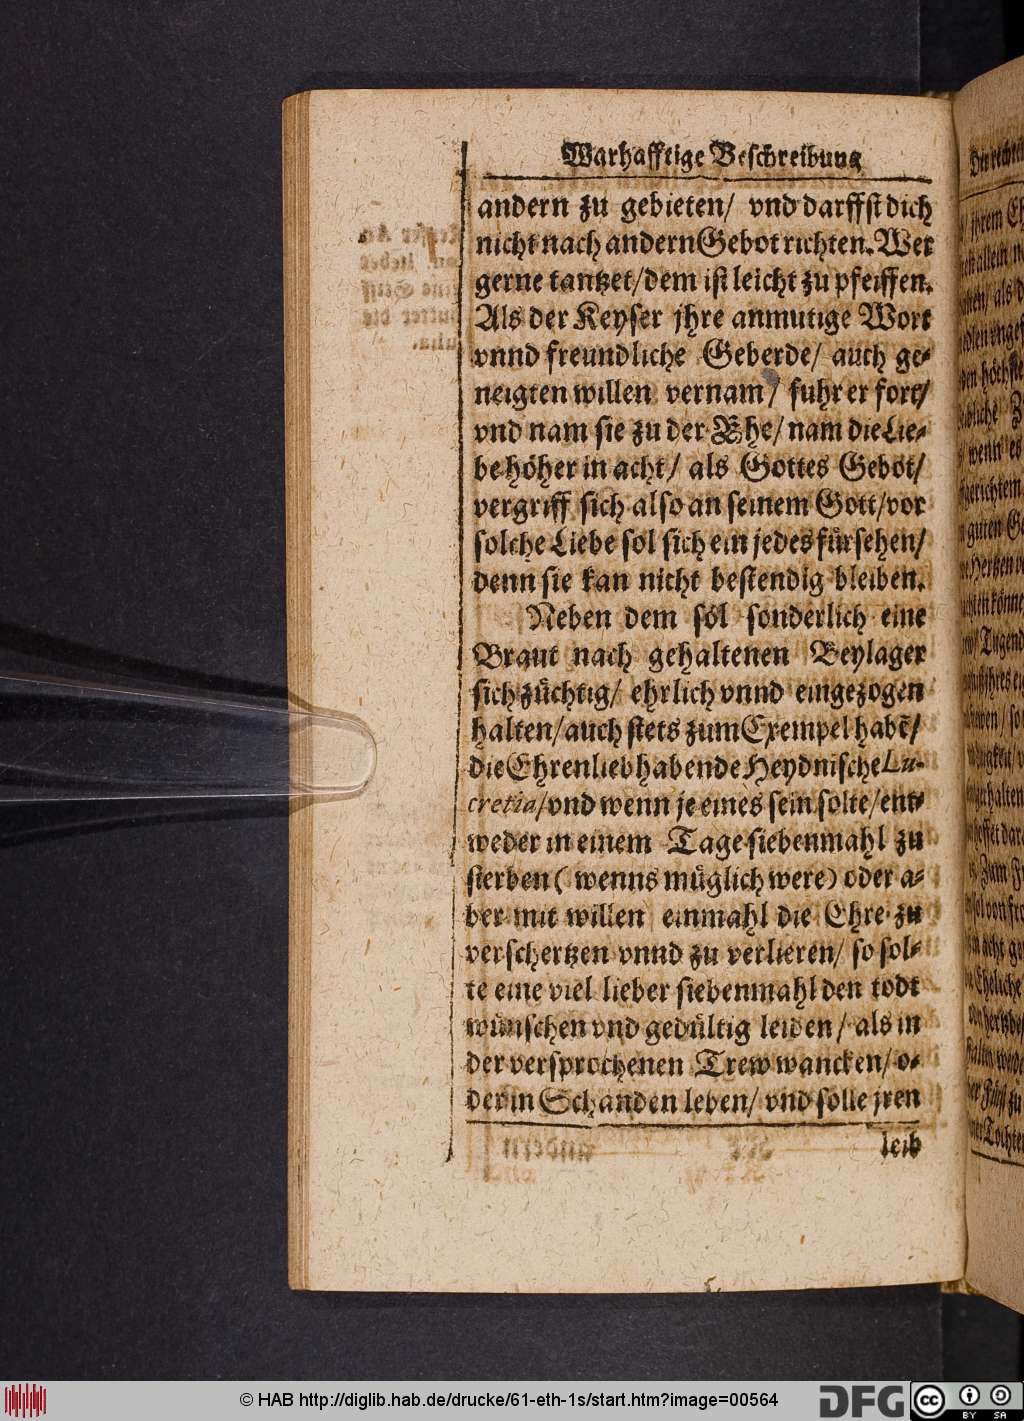 Warhafftige Beschreibung
andern zu gebieten/ vnd darffst dich
nicht nach andern Gebot richten. Wer
gerne tantzet/dem ist leicht zu pfeiffen.
Als der Keyser jhre anmutige Wort
vnnd freundliche Geberde/ auch ge-
neigten willen vernam/ fuhr er fort/
vnd nam sie zu der Ehe/ nam die Lie-
be höher in acht/ als Gottes Gebot/
vergriff sich also an seinem Gott/vor
solche Liebe sol sich ein jedes fürsehen/
denn sie kan nicht bestendig bleiben.
Neben dem sol sonderlich eine
Braut nach gehaltenen Beylager
sich züchtig/ ehrlich vnnd eingezogen
halten/auch stets zum Exempel habē/
die Ehrenliebhabende Heydnische Lu-
cretia/vnd wenn je eines sein solte/ent-
weder in einem Tage siebenmahl zu
sterben ( wenns müglich were) oder a-
ber mit willen einmahl die Ehre zu
verschertzen vnnd zu verlieren/ so sol-
te eine viel lieber siebenmahl den todt
wünschen vnd gedültig leiden/ als in
der versprochenen Trew wancken/ o-
der in Schanden leben/ vnd solle jren
leib
© HAB http://diglib.hab.de/drucke/61-eth-1s/start.htm?image=00564
DFG
cc
BY SA